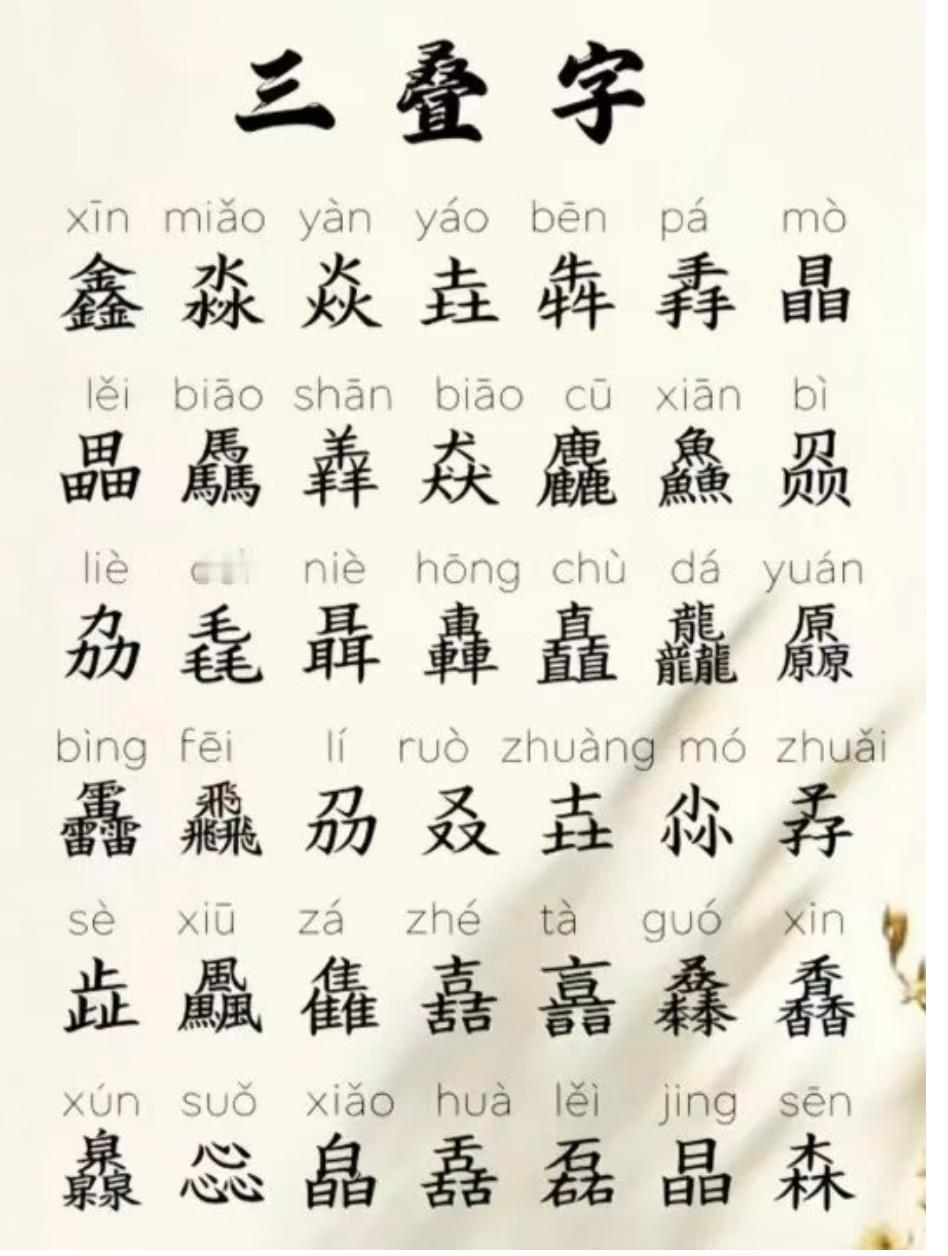 三叠字
xīn miǎo yàn yáo bēn pá mò
鑫 淼 焱 垚 犇 掱 瞐
lěi biāo shān biāo cū xiān bì
畾 驫 羴 猋 麤 鱻 赑
liè niè hōng chù dá yuán
劦 毳 聶 轟 矗 龘 厵
bìng fēi lí ruò zhuàng mó zhuǎi
靐 飝 刕 叒 壵 尛 孨
sè xiū zá zhé tà guó xin
歮 飍 雥 嚞 譶 馫
xún suǒ xiǎo huà lěi jing sēn
灥 惢 皛 舙 磊 晶 森